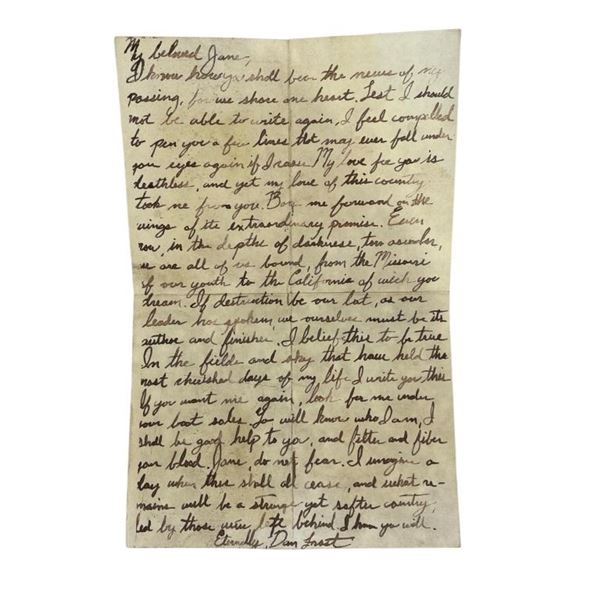 My beloved Jane,
I know how you shall bear the news of my
passing, for we share one heart. Lest I should
not be able to write again, I feel compelled
to pen you a few lines that may ever fall under
your eyes again if I cease. My love for you is
deathless, and yet my love of this country
took me from you. Bore me forward on the
wings of its extraordinary promise. Even
now, in the depths of darkness, torn asunder,
we are all of us bound, from the Missouri
of our youth to the California of wich you
dream. If destruction be our lot, as our
leader has spoken, we ourselves must be its
author and finisher. I belief this to be true
In the fields and sky that have held the
most cherished days of my life I write you this
If you want me again, look for me under
your boot soles. You will know who I am, I
shall be good help to you, and filter and fiber
your blood. Jane, do not fear. I imagine a
day when this shall all cease, and what re-
mains will be a strange yet softer country,
led by those were left behind. I know you will.
Eternally, Dan Frost